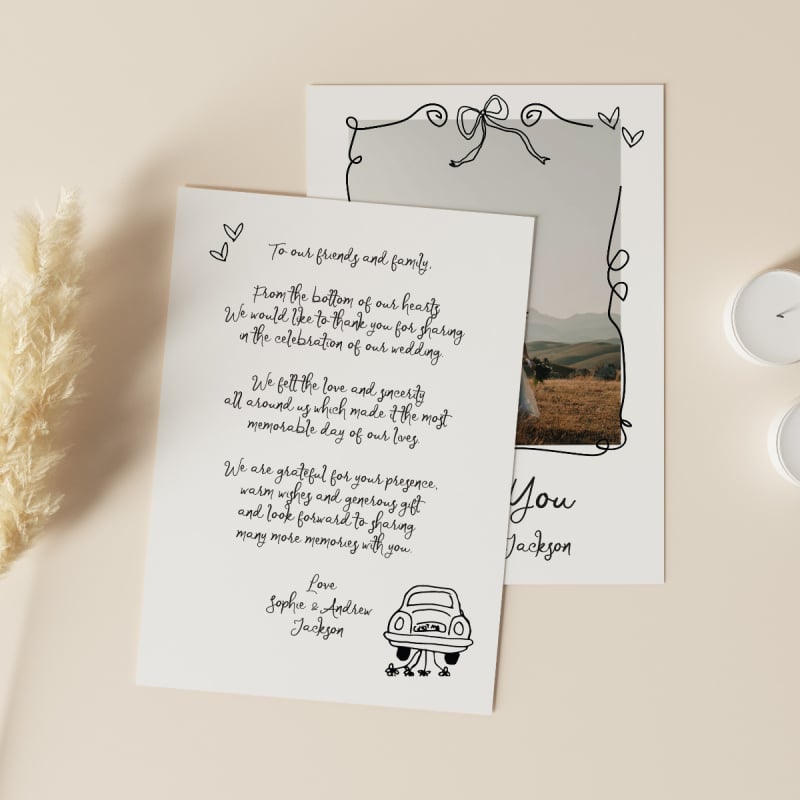 To our friends and family,
From the bottom of our hearts
We would like to thank you for sharing
in the celebration of our wedding.
We felt the love and sincerity
all around us which made it the most
memorable day of our lives.
We are grateful for your presence,
warm wishes and generous gift
and look forward to sharing
many more memories with you.
Love
Sophie & Andrew
Jackson
You
Jackson